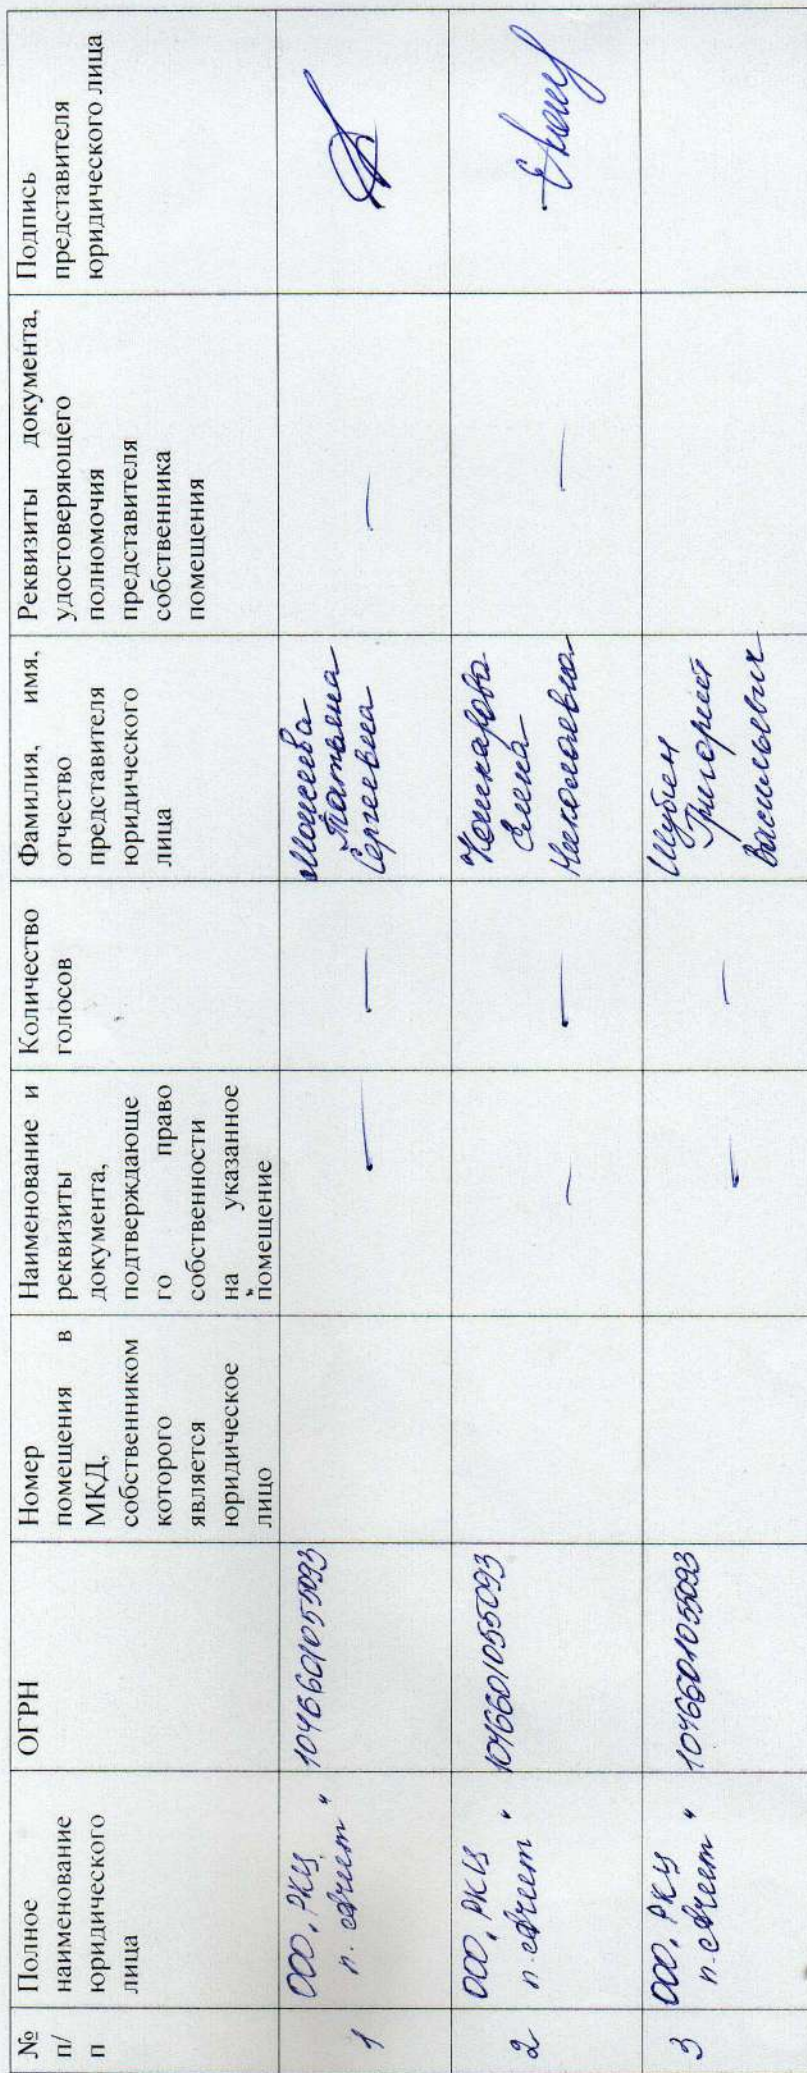 №
п/
п
Полное
наименование
юридического
лица
ОГРН
Номер
помещения в
МКД,
собственником
которого
является
юридическое
лицо
Наименование и
реквизиты
документа,
подтверждающе
го право
собственности
на указанное
помещение
Количество
голосов
Фамилия, имя,
отчество
представителя
юридического
лица
Реквизиты документа,
удостоверяющего
полномочия
представителя
собственника
помещения
Подпись
представителя
юридического лица
1
ООО "РКЦ
п.
1046601055093
—
—
Моисеева
Татьяна
Сергеевна
—
2
ООО "РКЦ
п.
1046601055093
—
—
Кошкарова
Елена
Николаевна
—
3
ООО "РКЦ
п.
1046601055093
—
—
Шубин
Григорий
Васильевич